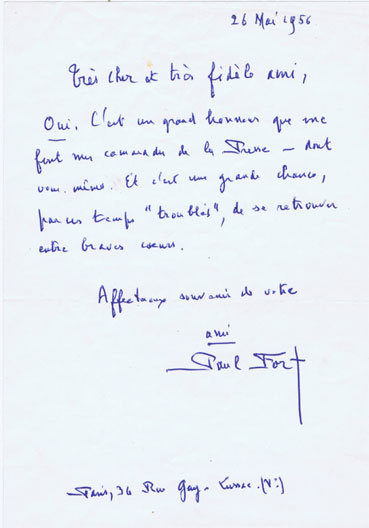 26 Mai 1956
Très cher et très fidèle ami,
Oui. C'est un grand honneur que me
font mes camarades de la Presse – dont
vous-même. Et c'est une grande chance,
par ces temps "troublés", de se retrouver
entre braves cœurs.
Affectueux souvenir de votre
ami
Paul Fort
Paris, 34 Rue Gay-Lussac. (Vᵉ)